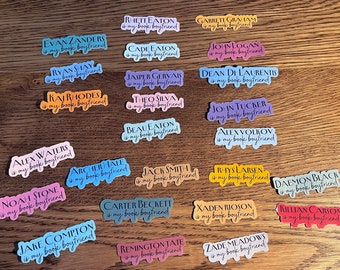 RHETT EATON
is my book boyfriend
GARRETT GRAHAM
is my book boyfriend
EVAN ZANDERS
is my book boyfriend
CADE EATON
is my book boyfriend
JOHN LOGAN
is my book boyfriend
RYAN SHAY
is my book boyfriend
JASPER GERVAIS
is my book boyfriend
DEAN DI LAURENTIS
is my book boyfriend
KAI RHODES
is my book boyfriend
THEO SILVA
is my book boyfriend
JOHN TUCKER
is my book boyfriend
BEAU EATON
is my book boyfriend
ALEX VOLKOV
is my book boyfriend
ALEX WATERS
is my book boyfriend
ARCHER HALE
is my book boyfriend
JACK SMITH
is my book boyfriend
RHYS LARSEN
is my book boyfriend
DAEMON BLACK
is my book boyfriend
NOAH STONE
is my book boyfriend
CARTER BECKETT
is my book boyfriend
XADEN RIOSON
is my book boyfriend
KILLIAN CARSON
is my book boyfriend
JAKE COMPTON
is my book boyfriend
REMINGTON TATE
is my book boyfriend
ZADE MEADOWS
is my book boyfriend